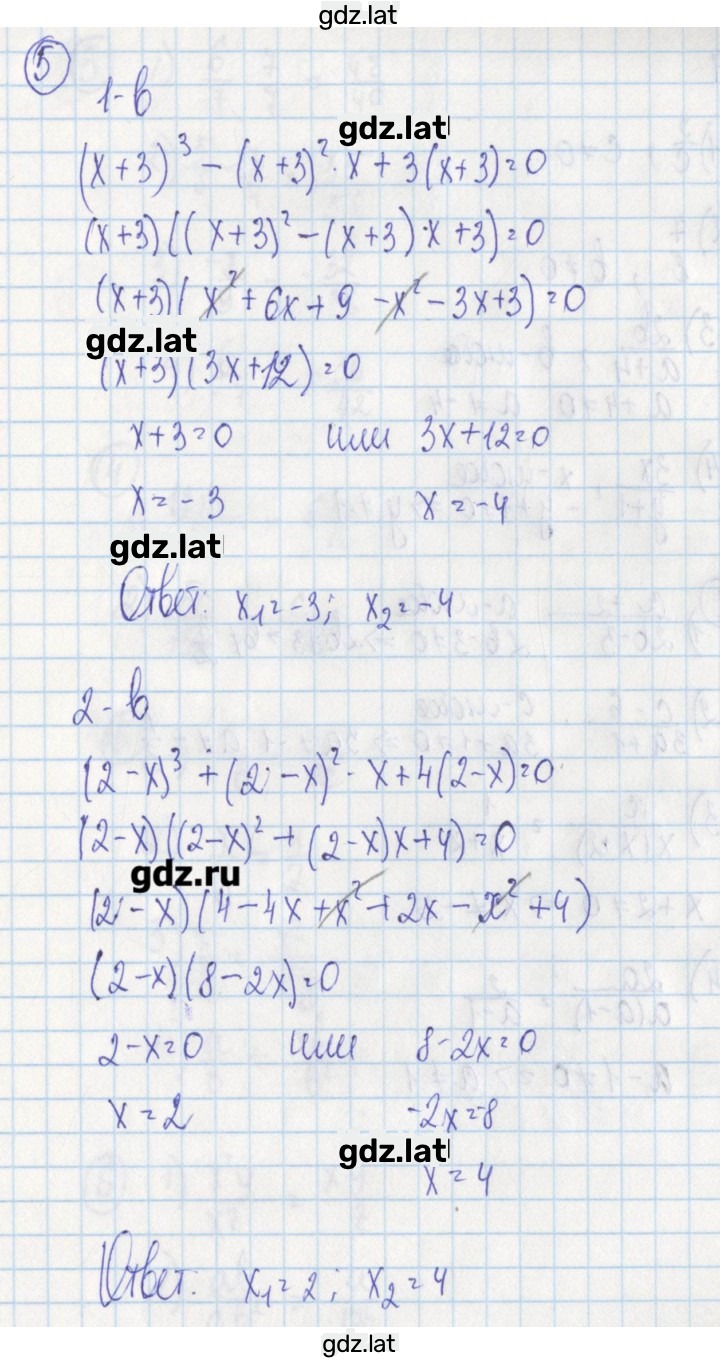 gdz.lat
5
1-в
gdz.lat
(x+3)³ - (x+3)²·x + 3(x+3)=0
(x+3)((x+3)² - (x+3)·x + 3)=0
(x+3)(x² + 6x + 9 - x² - 3x + 3)=0
gdz.lat
(x+3)(3x+12)=0
x+3=0 или 3x+12=0
x=-3 x=-4
gdz.lat
Ответ: x₁=-3; x₂=-4
2-в
(2-x)³ + (2-x)²·x + 4(2-x)=0
(2-x)((2-x)² + (2-x)x + 4)=0
gdz.ru
(2-x)(4-4x+x²+2x-x²+4)
(2-x)(8-2x)=0
2-x=0 или 8-2x=0
x=2 -2x=-8
gdz.lat
x=4
Ответ: x₁=2; x₂=4
gdz.lat